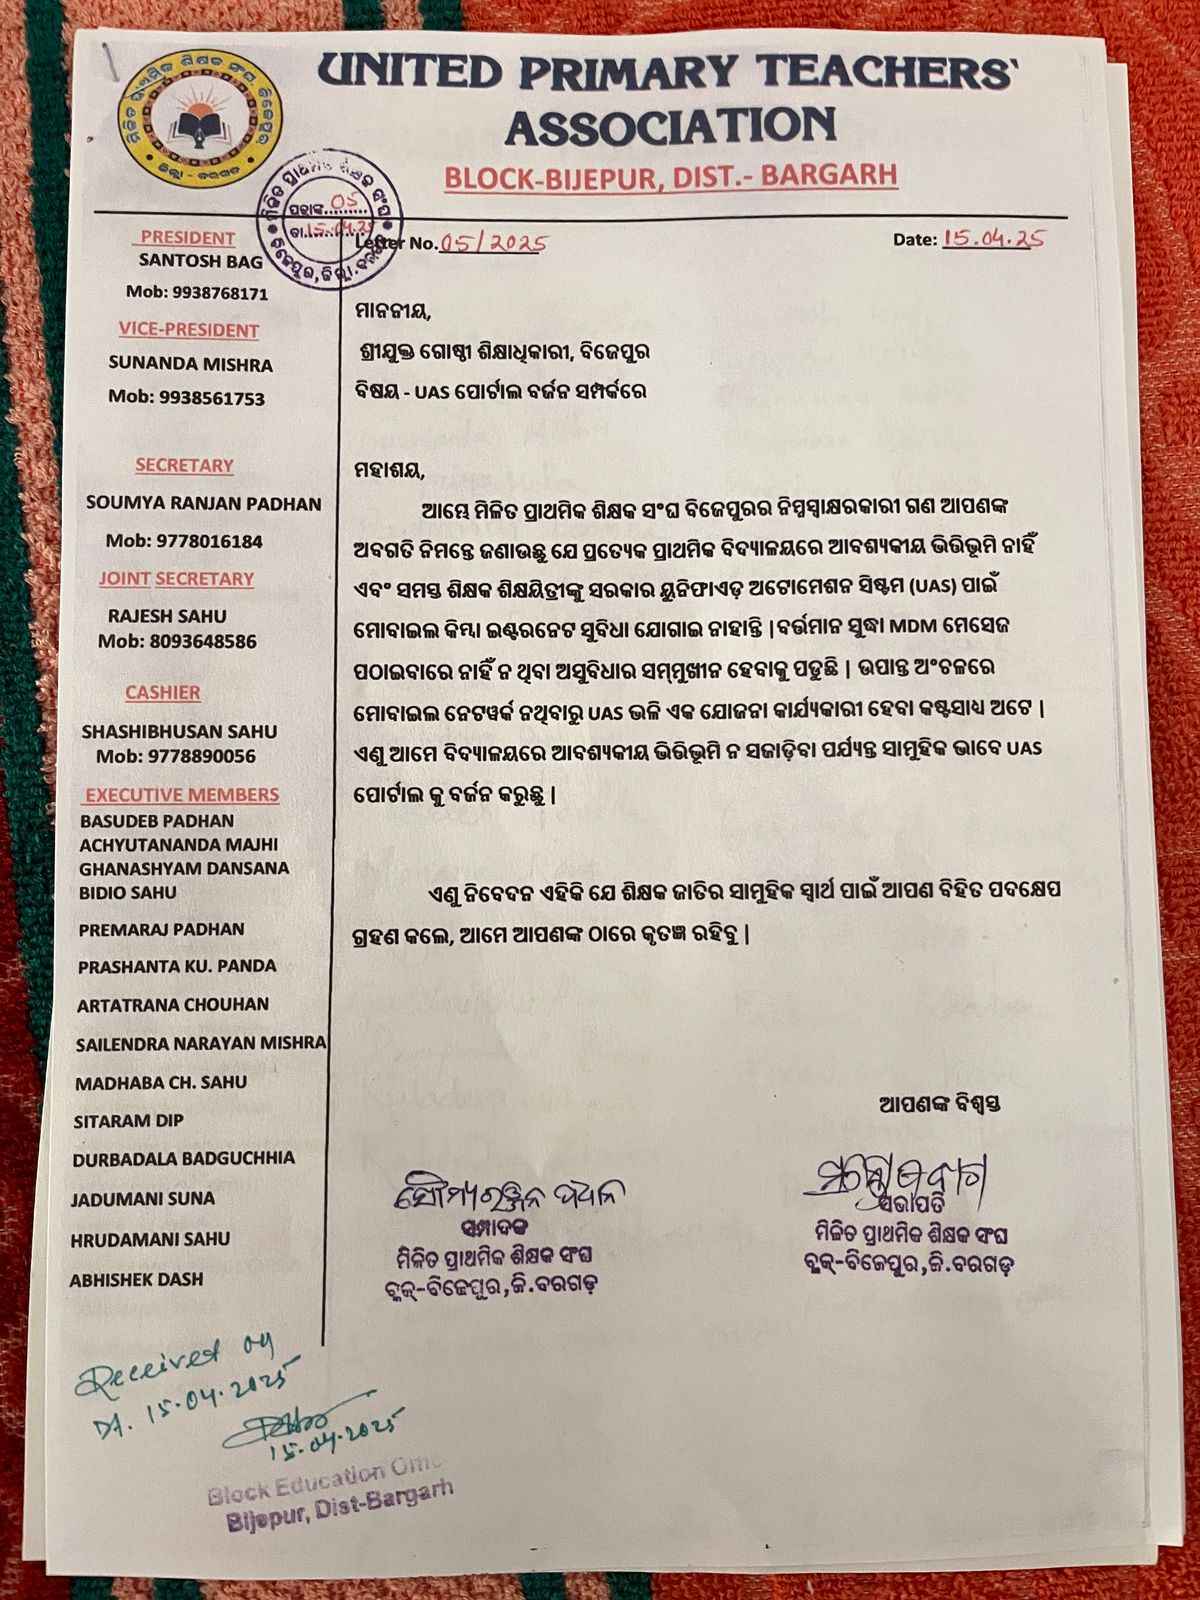 UNITED PRIMARY TEACHERS'
ASSOCIATION
BLOCK-BIJEPUR, DIST.- BARGARH
ମିଳିତ ପ୍ରାଥମିକ ଶିକ୍ଷକ ସଂଘ, ବିଜେପୁର
ଜିଲ୍ଲା - ବରଗଡ
ମିଳିତ ପ୍ରାଥମିକ ଶିକ୍ଷକ ସଂଘ
ପତ୍ରାଙ୍କ.........05
ତା............15.04.25
ବିଜେପୁର, ଜିଲ୍ଲା.ବରଗଡ
Letter No. 05/2025
Date: 15.04.25
PRESIDENT
SANTOSH BAG
Mob: 9938768171
VICE-PRESIDENT
SUNANDA MISHRA
Mob: 9938561753
SECRETARY
SOUMYA RANJAN PADHAN
Mob: 9778016184
JOINT SECRETARY
RAJESH SAHU
Mob: 8093648586
CASHIER
SHASHIBHUSAN SAHU
Mob: 9778890056
EXECUTIVE MEMBERS
BASUDEB PADHAN
ACHYUTANANDA MAJHI
GHANASHYAM DANSANA
BIDIO SAHU
PREMARAJ PADHAN
PRASHANTA KU. PANDA
ARTATRANA CHOUHAN
SAILENDRA NARAYAN MISHRA
MADHABA CH. SAHU
SITARAM DIP
DURBADALA BADGUCHHIA
JADUMANI SUNA
HRUDAMANI SAHU
ABHISHEK DASH
ମାନନୀୟ,
ଶ୍ରୀଯୁକ୍ତ ଗୋଷ୍ଠୀ ଶିକ୍ଷାଧିକାରୀ, ବିଜେପୁର
ବିଷୟ - UAS ପୋର୍ଟାଲ ବର୍ଜନ ସମ୍ପର୍କରେ
ମହାଶୟ,
ଆମ୍ଭେ ମିଳିତ ପ୍ରାଥମିକ ଶିକ୍ଷକ ସଂଘ ବିଜେପୁରର ନିମ୍ନସ୍ବାକ୍ଷରକାରୀ ଗଣ ଆପଣଙ୍କ
ଅବଗତି ନିମନ୍ତେ ଜଣାଉଛୁ ଯେ ପ୍ରତ୍ୟେକ ପ୍ରାଥମିକ ବିଦ୍ୟାଳୟରେ ଆବଶ୍ୟକୀୟ ଭିତ୍ତିଭୂମି ନାହିଁ
ଏବଂ ସମସ୍ତ ଶିକ୍ଷକ ଶିକ୍ଷୟିତ୍ରୀଙ୍କୁ ସରକାର ୟୁନିଫାଏଡ଼ ଅଟୋମେଶନ ସିଷ୍ଟମ (UAS) ପାଇଁ
ମୋବାଇଲ କିମ୍ବା ଇଣ୍ଟରନେଟ ସୁବିଧା ଯୋଗାଇ ନାହାନ୍ତି |ବର୍ତ୍ତମାନ ସୁଦ୍ଧା MDM ମେସେଜ
ପଠାଇବାରେ ନାହିଁ ନ ଥିବା ଅସୁବିଧାର ସମ୍ମୁଖୀନ ହେବାକୁ ପଡୁଛି | ଉପାନ୍ତ ଅଂଚଳରେ
ମୋବାଇଲ ନେଟୱର୍କ ନଥିବାରୁ UAS ଭଳି ଏକ ଯୋଜନା କାର୍ଯ୍ୟକାରୀ ହେବା କଷ୍ଟସାଧ୍ୟ ଅଟେ |
ଏଣୁ ଆମେ ବିଦ୍ୟାଳୟରେ ଆବଶ୍ୟକୀୟ ଭିତ୍ତିଭୂମି ନ ସଜାଡ଼ିବା ପର୍ଯ୍ୟନ୍ତ ସାମୁହିକ ଭାବେ UAS
ପୋର୍ଟାଲ କୁ ବର୍ଜନ କରୁଛୁ |
ଏଣୁ ନିବେଦନ ଏହିକି ଯେ ଶିକ୍ଷକ ଜାତିର ସାମୁହିକ ସ୍ୱାର୍ଥ ପାଇଁ ଆପଣ ବିହିତ ପଦକ୍ଷେପ
ଗ୍ରହଣ କଲେ, ଆମେ ଆପଣଙ୍କ ଠାରେ କୃତଜ୍ଞ ରହିବୁ |
ଆପଣଙ୍କ ବିଶ୍ୱସ୍ତ
ସୌମ୍ୟରଞ୍ଜନ ପଧାନ
ସମ୍ପାଦକ
ମିଳିତ ପ୍ରାଥମିକ ଶିକ୍ଷକ ସଂଘ
ବ୍ଲକ୍-ବିଜେପୁର,ଜି.ବରଗଡ଼
ସନ୍ତୋଷ ବାଗ
ସଭାପତି
ମିଳିତ ପ୍ରାଥମିକ ଶିକ୍ଷକ ସଂଘ
ବ୍ଲକ୍-ବିଜେପୁର,ଜି.ବରଗଡ଼
Received on
Dt. 15.04.2025
15.04.2025
Block Education Offic
Bijepur, Dist-Bargarh